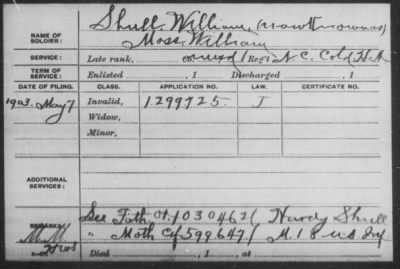 Shull, William, (now known as)
NAME OF SOLDIER: Moss, William
SERVICE: Late rank, Regt N.C. Cold. H.A
TERM OF SERVICE: Enlisted , 1 Discharged , 1
DATE OF FILING. CLASS. APPLICATION NO. LAW. CERTIFICATE NO.
1903. May 7 Invalid, 1.299725. J
Widow,
Minor,
ADDITIONAL SERVICES:
See Fath Ct. 1030462 Hardy Shull
REMARKS: " Moth Cf 599647 M. 18 U.S. Inf.
M.M.
Died , 1 , at